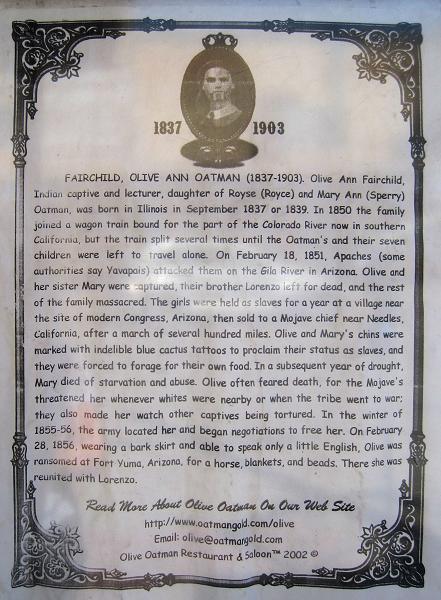 1837 1903
FAIRCHILD, OLIVE ANN OATMAN (1837-1903). Olive Ann Fairchild,
Indian captive and lecturer, daughter of Royse (Royce) and Mary Ann (Sperry)
Oatman, was born in Illinois in September 1837 or 1839. In 1850 the family
joined a wagon train bound for the part of the Colorado River now in southern
California, but the train split several times until the Oatman's and their seven
children were left to travel alone. On February 18, 1851, Apaches (some
authorities say Yavapais) attacked them on the Gila River in Arizona. Olive and
her sister Mary were captured, their brother Lorenzo left for dead, and the rest
of the family massacred. The girls were held as slaves for a year at a village near
the site of modern Congress, Arizona, then sold to a Mojave chief near Needles,
California, after a march of several hundred miles. Olive and Mary's chins were
marked with indelible blue cactus tattoos to proclaim their status as slaves, and
they were forced to forage for their own food. In a subsequent year of drought,
Mary died of starvation and abuse. Olive often feared death, for the Mojave's
threatened her whenever whites were nearby or when the tribe went to war;
they also made her watch other captives being tortured. In the winter of
1855-56, the army located her and began negotiations to free her. On February
28, 1856, wearing a bark skirt and able to speak only a little English, Olive was
ransomed at Fort Yuma, Arizona, for a horse, blankets, and beads. There she was
reunited with Lorenzo.
Read More About Olive Oatman On Our Web Site
http://www.oatmangold.com/olive
Email: olive@oatmangold.com
Olive Oatman Restaurant & Saloon™ 2002 ©